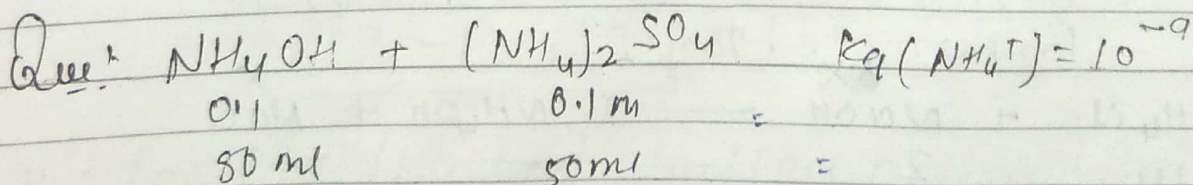 Que: NH4OH + (NH4)2 SO4 Ka (NH4+) = 10^-9
0.1 0.1 m =
50 ml 50ml =